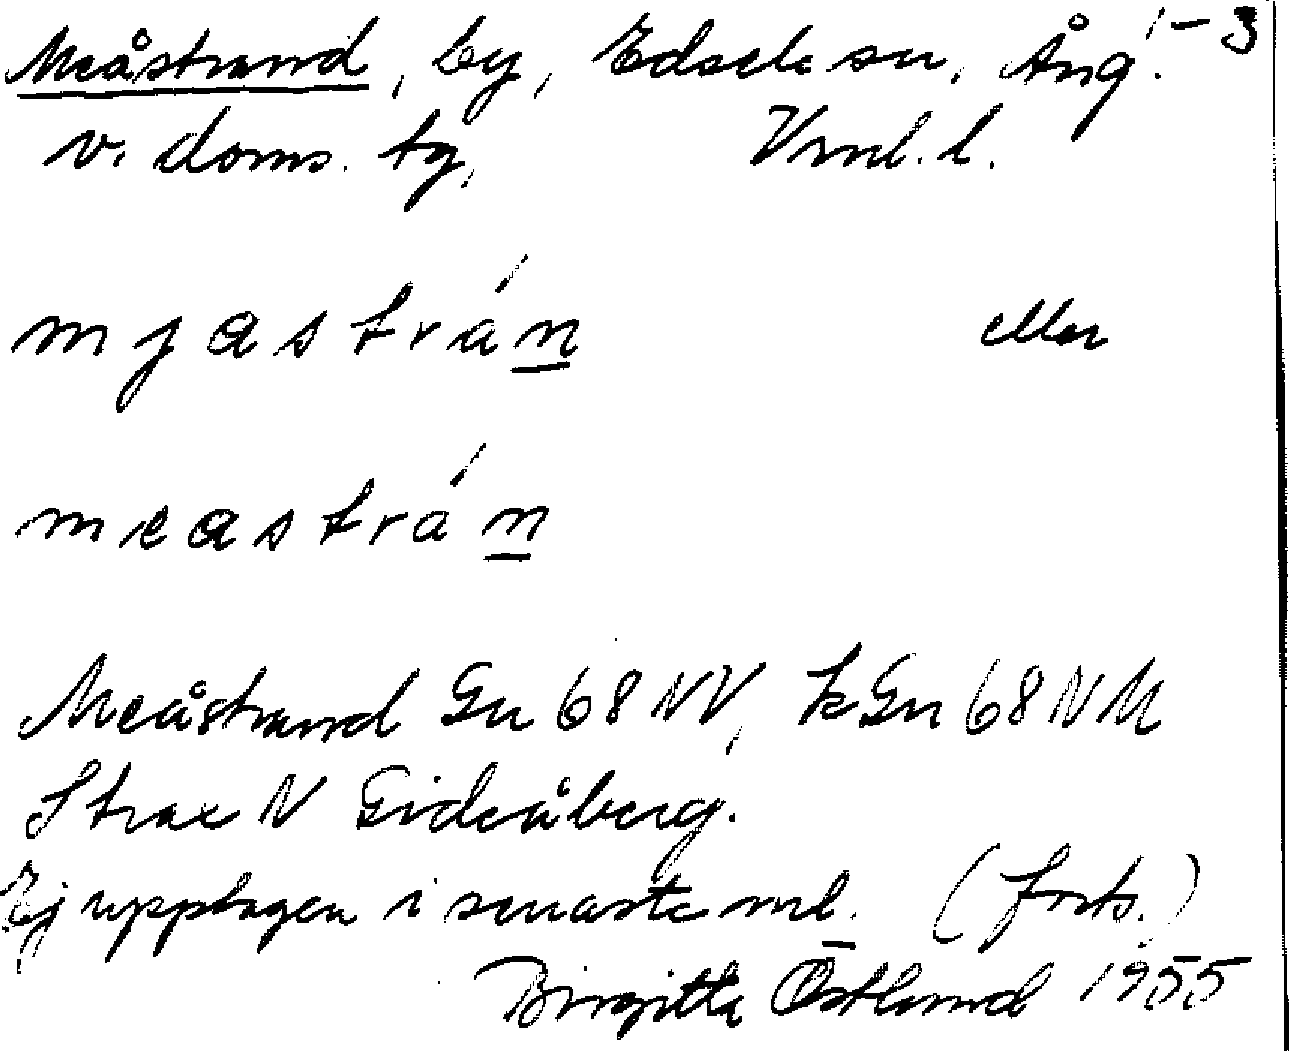 Meåstrand, by, Edsele sn, Ång. 1-3
v. doms. tg, Vrnl. l.
mjastrán eller
meastrán
Meåstrand Gn 68 NV, kGn 68 NV
Strax N Gideåberg.
Ej upptagen i senaste ml. (forts.)
Birgitta Östlund 1955